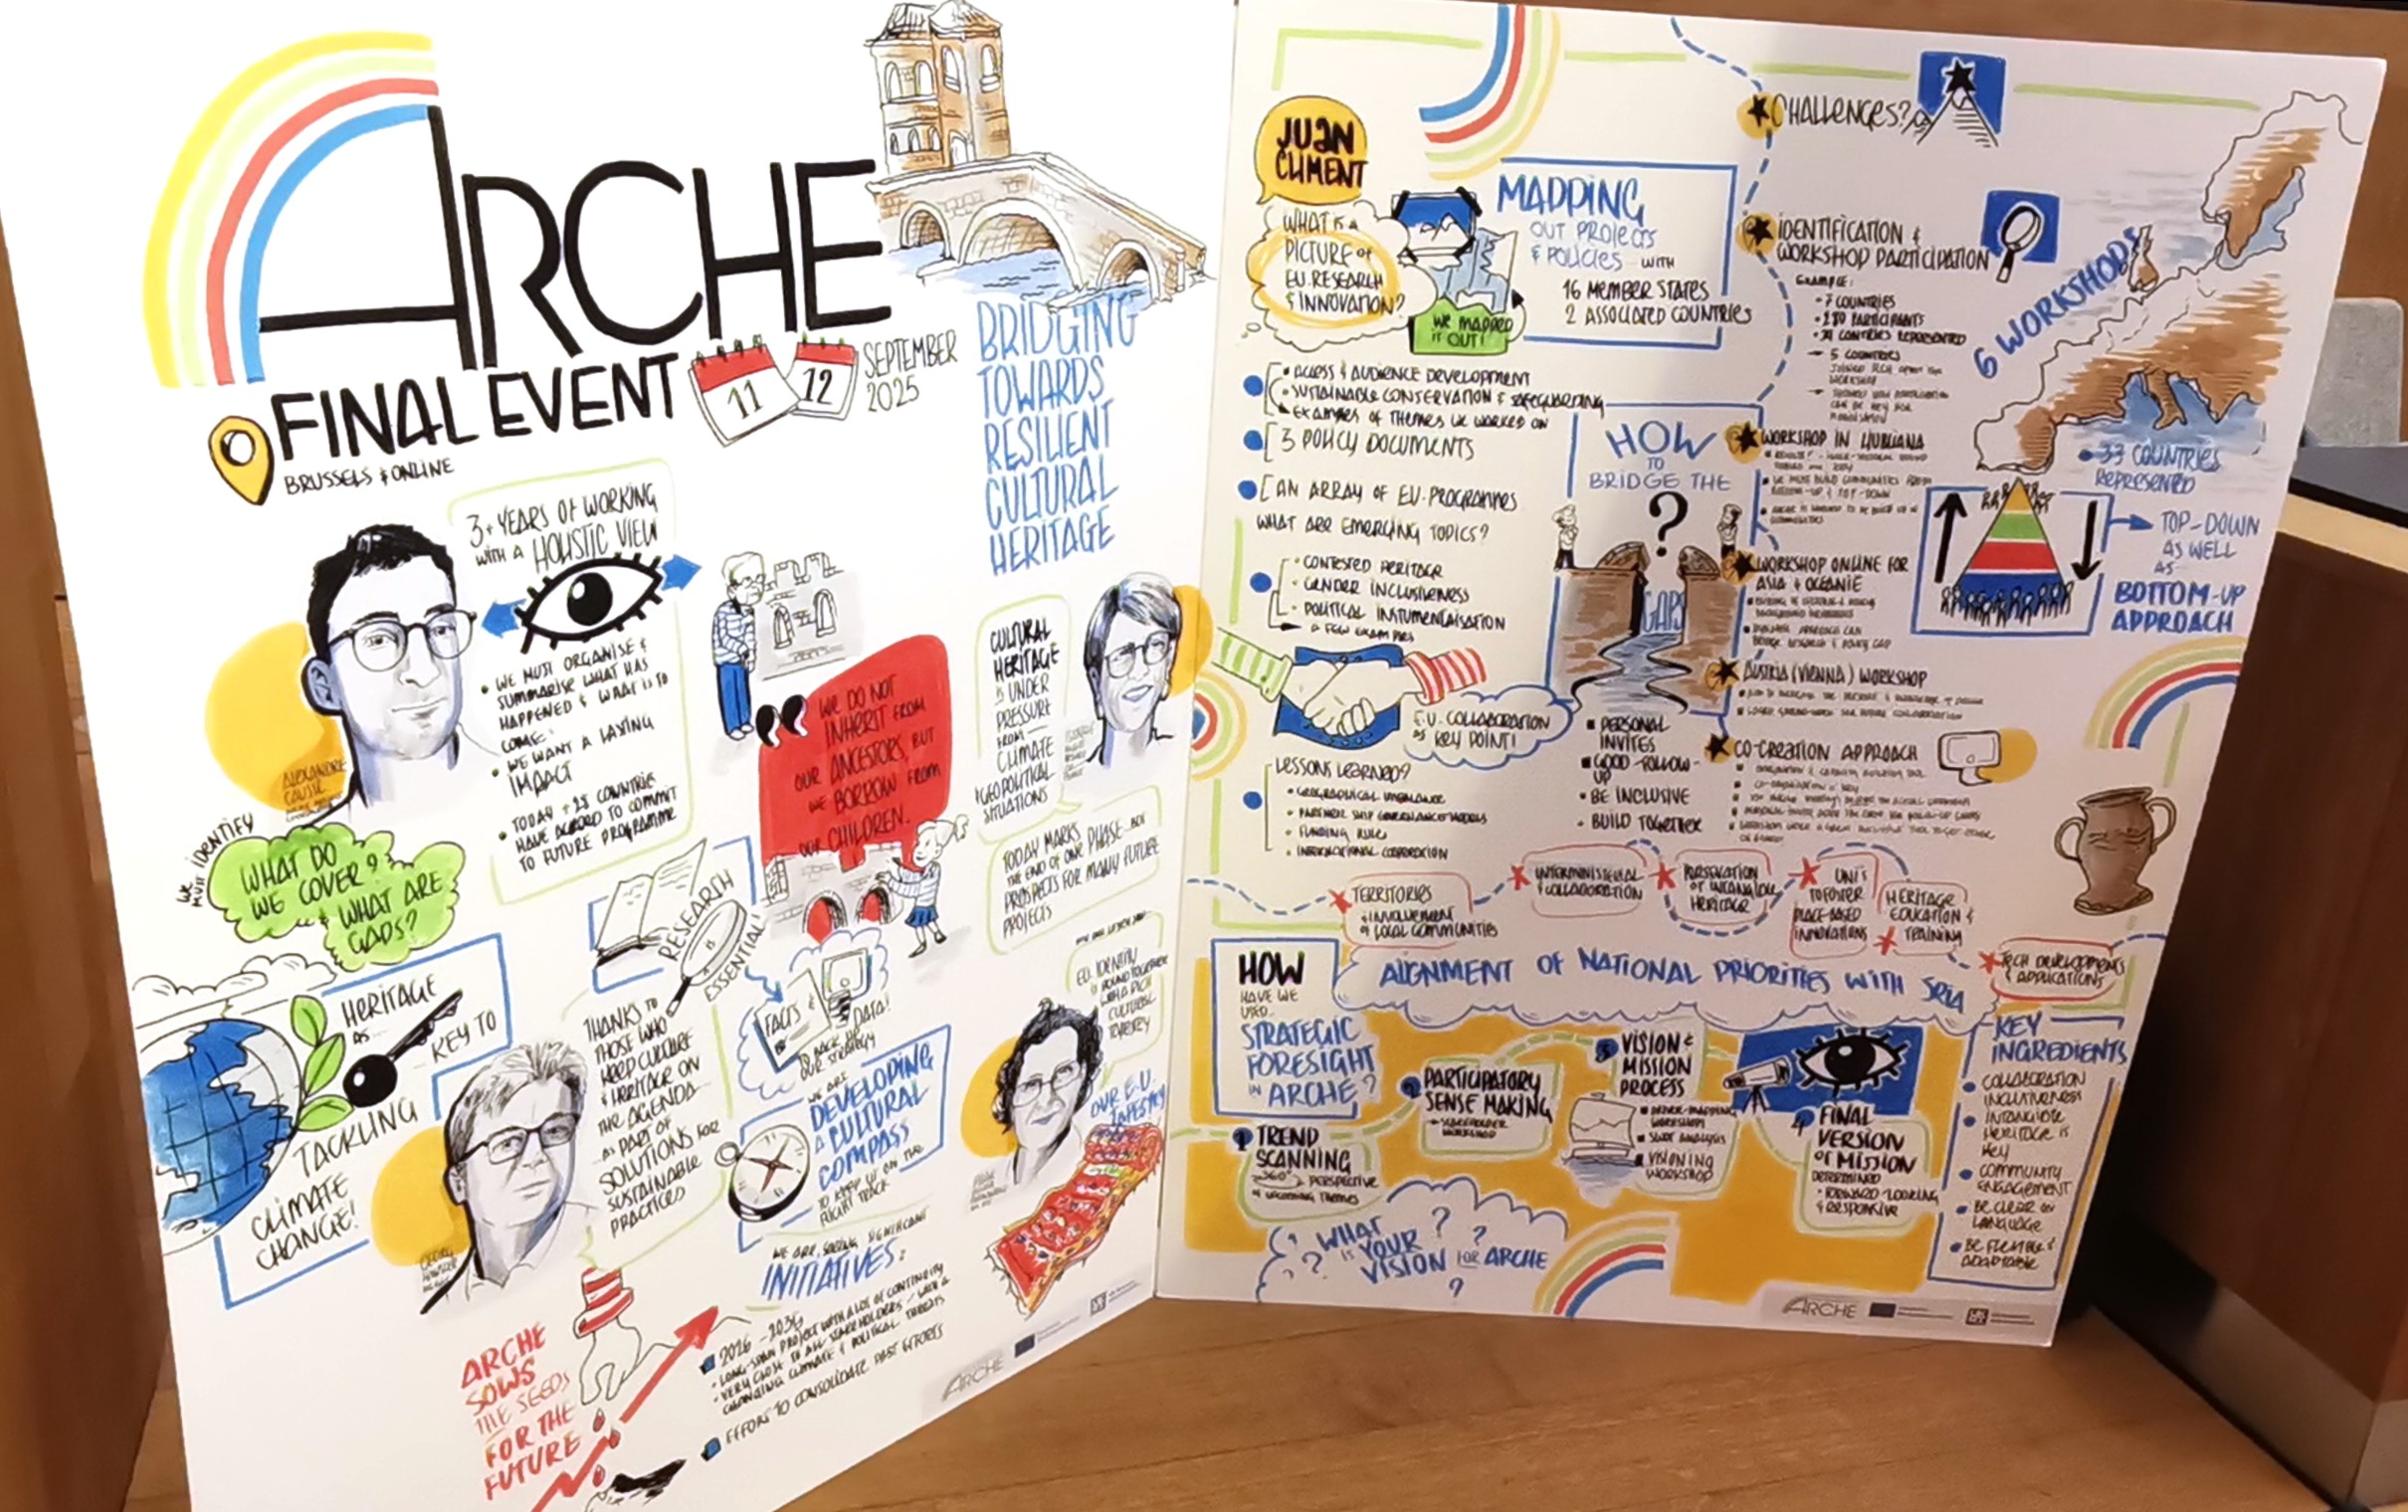 ARCHE
FINAL EVENT
11
12
SEPTEMBER
2025
BRUSSELS & ONLINE
BRIDGING
TOWARDS
RESILIENT
CULTURAL
HERITAGE
3+ YEARS OF WORKING
WITH A HOLISTIC VIEW
• WE MUST ORGANISE &
SUMMARISE WHAT HAS
HAPPENED & WHAT IS TO
COME
• WE WANT A LASTING
IMPACT
• TODAY +25 COUNTRIES
HAVE AGREED TO COMMIT
TO FUTURE PROGRAMME
ALEXANDRE
CAUSSE
WE
MUST IDENTIFY
WHAT DO
WE COVER?
& WHAT ARE
GAPS?
WE DO NOT
INHERIT FROM
OUR ANCESTORS, BUT
WE BORROW FROM
OUR CHILDREN.
CULTURAL
HERITAGE
IS UNDER
PRESSURE
FROM
CLIMATE
& GEOPOLITICAL
SITUATIONS
TODAY MARKS
THE END OF ONE PHASE BUT
PROSPECTS FOR MANY FUTURE
PROJECTS
HERITAGE
AS
KEY TO
TACKLING
CLIMATE
CHANGE!
RESEARCH
IS
ESSENTIAL!
THANKS TO
THOSE WHO
KEEP CULTURE
& HERITAGE ON
THE AGENDA
AS PART OF
SOLUTIONS FOR
SUSTAINABLE
PRACTICES
FACTS &
DATA!
TO BACK UP
OUR STRATEGY
WE ARE
DEVELOPING
A CULTURAL
COMPASS
TO KEEP US ON THE
RIGHT TRACK
E.U. IDENTITY
IS BOUND TOGETHER
WITH A RICH
CULTURAL
TAPESTRY
OUR E.U.
TAPESTRY
WE ARE SEEING SIGNIFICANT
INITIATIVES:
2026 - 2036
• LONG-SPAN PROJECT WITH A LOT OF CONTINUITY
• VERY CLOSE TO ALL STAKEHOLDERS - WITH A
CHANGING CLIMATE & POLITICAL THREATS
EFFORT TO CONSOLIDATE PAST EFFORTS
ARCHE
SOWS
THE SEEDS
FOR THE
FUTURE
ARCHE
JUAN
CLIMENT
WHAT IS A
PICTURE OF
EU. RESEARCH
& INNOVATION?
WE MAPPED
IT OUT!
MAPPING
OUT PROJECTS
& POLICIES WITH
16 MEMBER STATES
2 ASSOCIATED COUNTRIES
• ACCESS & AUDIENCE DEVELOPMENT
• SUSTAINABLE CONSERVATION & SAFEGUARDING
EXAMPLES OF THEMES WE WORKED ON
3 POLICY DOCUMENTS
AN ARRAY OF EU-PROGRAMMES
WHAT ARE EMERGING TOPICS?
• CONTESTED HERITAGE
• GENDER INCLUSIVENESS
• POLITICAL INSTUMENTALISATION
A FEW EXAMPLES
E.U. COLLABORATION
AS KEY POINT!
LESSONS LEARNED?
• GEOGRAPHICAL IMBALANCE
• PARTNERSHIP GOVERNANCE MODELS
• FUNDING RULES
• INTERNATIONAL COOPERATION
HOW
TO
BRIDGE THE
?
GAPS
PERSONAL
INVITES
GOOD FOLLOW-
UP
BE INCLUSIVE
BUILD TOGETHER
CHALLENGES?
IDENTIFICATION &
WORKSHOP PARTICIPATION
EXAMPLE:
• 7 COUNTRIES
5 COUNTRIES
WORKSHOP IN LJUBLJANA
WORKSHOP ONLINE FOR
ASIA & OCEANIE
AUSTRIA (VIENNA) WORKSHOP
CO-CREATION APPROACH
6 WORKSHOPS
33 COUNTRIES
REPRESENTED
TOP-DOWN
AS WELL
AS
BOTTOM-UP
APPROACH
TERRITORIES
& INVOLVEMENT
OF LOCAL COMMUNITIES
INTERMINISTERIAL
COLLABORATION
HERITAGE
UNI'S
TO FOSTER
PLACE-BASED
INNOVATIONS
HERITAGE
EDUCATION &
TRAINING
TECH DEVELOPMENTS
& APPLICATIONS
ALIGNMENT OF NATIONAL PRIORITIES WITH SRIA
HOW
HAVE WE
USED
STRATEGIC
FORESIGHT
IN ARCHE?
1 TREND
SCANNING
360° PERSPECTIVE
OF UPCOMING THEMES
2 PARTICIPATORY
SENSE MAKING
STAKEHOLDER
WORKSHOP
3 VISION &
MISSION
PROCESS
DRIVER-MAPPING
WORKSHOPS
SWOT ANALYSIS
VISIONING
WORKSHOP
4 FINAL
VERSION
OF MISSION
DETERMINED
• FORWARD-LOOKING
& RESPONSIVE
KEY
INGREDIENTS
• COLLABORATION
INCLUSIVENESS
• INTANGIBLE
HERITAGE IS
KEY
• COMMUNITY
ENGAGEMENT
• BE CLEAR ON
LANGUAGE
• BE FLEXIBLE &
ADAPTABLE
WHAT
IS YOUR
VISION FOR ARCHE
?
ARCHE